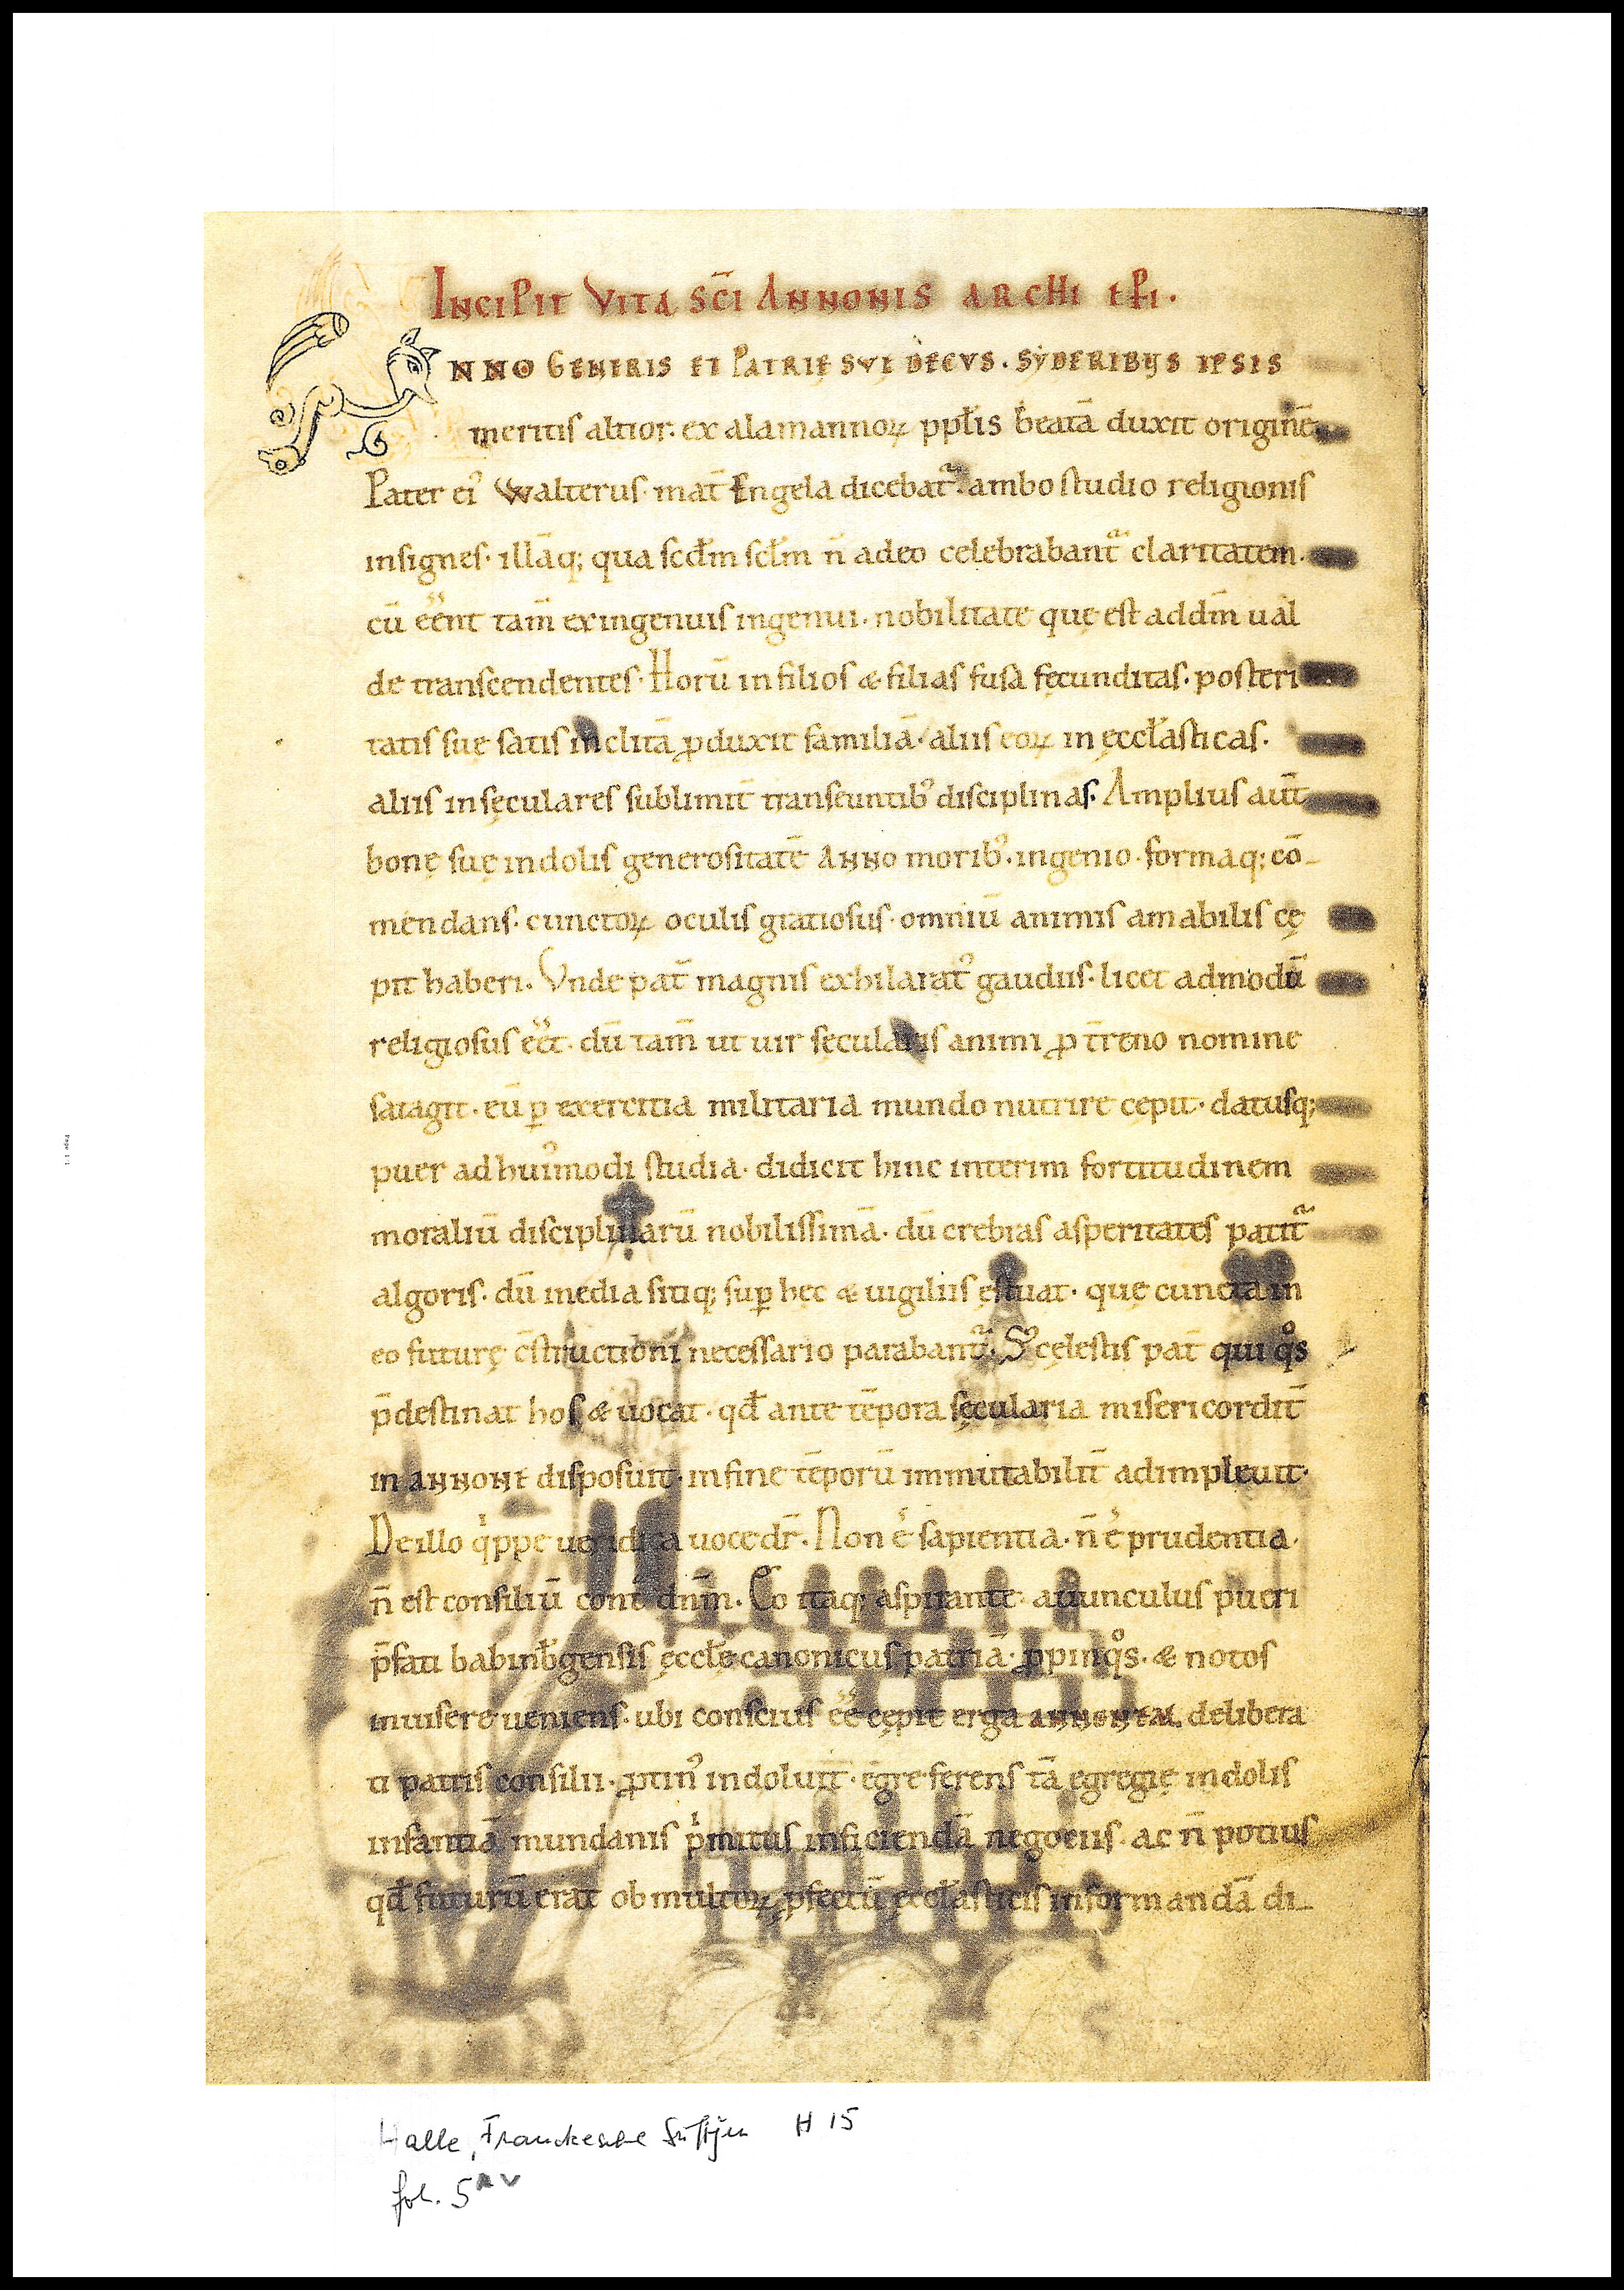 INCIPIT VITA SC̄I ANNONIS ARCHI EP̄I.
NNO GENERIS ET PATRIĘ SVĘ DECVS. SYDERIBUS IPSIS
meritis altior. ex alamannoꝝ ppl̄is beatā duxit originē.
Pater eiꝰ Walterus. mat̄ Engela dicebat̄. ambo studio religionis
insignes. illāq; qua scd̄m scl̄m n̄ adeo celebrabant̄ claritatem.
cū eēnt tam̄ ex ingenuis ingenui. nobilitate quę est ad dm̄ ual
de transcendentes. Horū in filios & filias fusa fęcunditas. posteri
tatis suę satis inclitā ꝓduxit familiā. aliis eoꝝ in ęccl̄asticas.
aliis in sęculares sublimit̄ transeuntibꝰ disciplinas. Amplius aut̄
bonę suę indolis generositatē ANNO moribꝰ. ingenio. formaq; cō-
mendans. cunctoꝝ oculis gratiosus. omniū animis amabilis cę
pit haberi. Vnde pat̄ magnis exhilaratꝰ gaudiis. licet admodū
religiosus eēt. dū tam̄ ut uir sęcularis animi ꝓ t̄reno nomine
satagit. eū ꝑ exercitia militaria mundo nutrire cępit. datusq;
puer ad huiꝰmodi studia. didicit hinc interim fortitudinem
moraliū disciplinarū nobilissimā. dū crebras asperitates patit̄
algoris. dū inedia sitiq; suꝑ hęc & uigiliis ęstuat. quę cuncta in
eo futurę c̄structioni necessario parabant̄. Sꝫ cęlestis pat̄ qui qͦs
p̄destinat hos & uocat. qd̄ ante tēpora sęcularia misericordit̄
in ANNONE disposuit. in fine tēporū immutabilit̄ adimpleuit.
De illo qͥppe ueridica uoce dr̄. Non ē sapientia. n̄ ē prudentia.
n̄ est consiliū cont̄ dn̄m. Eo itaq; aspirante. auunculus pueri
p̄fati babinb̄gensis ęccl̄ę canonicus patriā. ꝓpinqͦs. & notos
inuisere ueniens. ubi conscius eē cępit erga ANNONEM delibera
ti patris consilii. ꝓtinꝰ indoluit. ęgre ferens tā egregię indolis
infantiā mundanis pͥmitus inficiendā negotiis. ac n̄ potius
qd̄ futurū erat ob multoꝝ ꝓfectū ęccl̄asticis informandā di-
Halle, Franckesche Stiftgen H 15
fol. 5 r v
Page 1:1